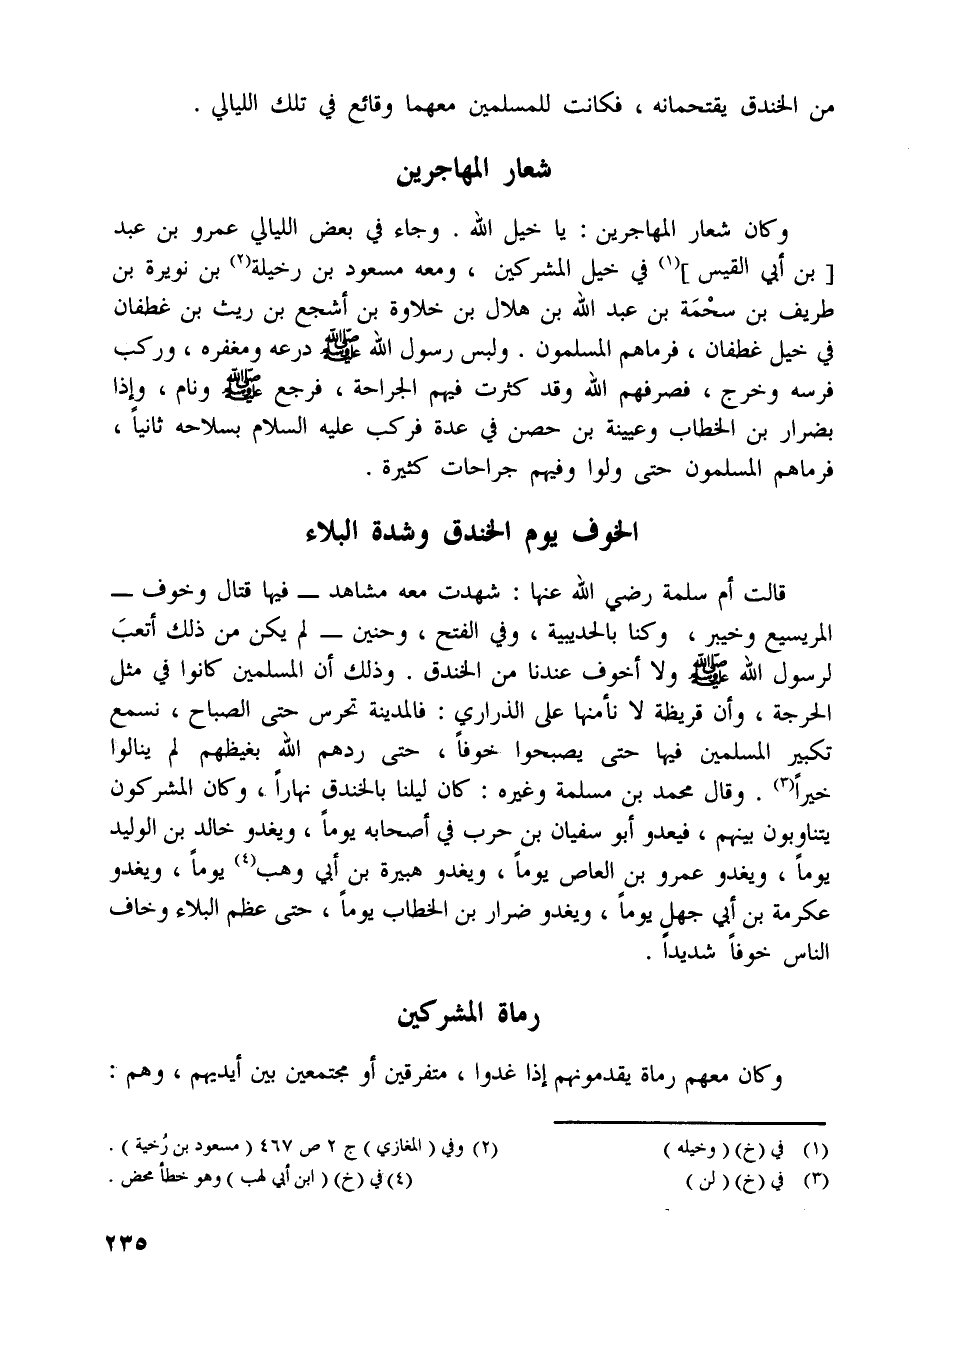 من الخندق يقتحمانه ، فكانت للمسلمين معهما وقائع في تلك الليالي .
شعار المهاجرين
وكان شعار المهاجرين : يا خيل الله . وجاء في بعض الليالي عمرو بن عبد
[ بن أبي القيس ](١) في خيل المشركين ، ومعه مسعود بن رخيلة(٢) بن نويرة بن
طريف بن سحْمَة بن عبد الله بن هلال بن خلاوة بن أشجع بن ريث بن غطفان
في خيل غطفان ، فرماهم المسلمون . ولبس رسول الله ﷺ درعه ومغفره ، وركب
فرسه وخرج ، فصرفهم الله وقد كثرت فيهم الجراحة ، فرجع ﷺ ونام ، وإذا
بضرار بن الخطاب وعيينة بن حصن في عدة فركب عليه السلام بسلاحه ثانياً ،
فرماهم المسلمون حتى ولوا وفيهم جراحات كثيرة .
الخوف يوم الخندق وشدة البلاء
قالت أم سلمة رضي الله عنها : شهدت معه مشاهد — فيها قتال وخوف —
المريسيع وخيبر ، وكنا بالحديبية ، وفي الفتح ، وحنين — لم يكن من ذلك أتعبَ
لرسول الله ﷺ ولا أخوف عندنا من الخندق . وذلك أن المسلمين كانوا في مثل
الحرجة ، وأن قريظة لا نأمنها على الذراري : فالمدينة تحرس حتى الصباح ، نسمع
تكبير المسلمين فيها حتى يصبحوا خوفاً ، حتى ردهم الله بغيظهم لم ينالوا
خيراً(٣) . وقال محمد بن مسلمة وغيره : كان ليلنا بالخندق نهاراً ، وكان المشركون
يتناوبون بينهم ، فيعدو أبو سفيان بن حرب في أصحابه يوماً ، ويغدو خالد بن الوليد
يوماً ، ويغدو عمرو بن العاص يوماً ، ويغدو هبيرة بن أبي وهب(٤) يوماً ، ويغدو
عكرمة بن أبي جهل يوماً ، ويغدو ضرار بن الخطاب يوماً ، حتى عظم البلاء وخاف
الناس خوفاً شديداً .
رماة المشركين
وكان معهم رماة يقدمونهم إذا غدوا ، متفرقين أو مجتمعين بين أيديهم ، وهم :
(١) في (خ) ( وخيله ) (٢) وفي ( المغازي ) ج ٢ ص ٤٦٧ ( مسعود بن رُخية ) .
(٣) في (خ) ( لن ) (٤) في (خ) ( ابن أبي لهب ) وهو خطأ محض .
٢٣٥